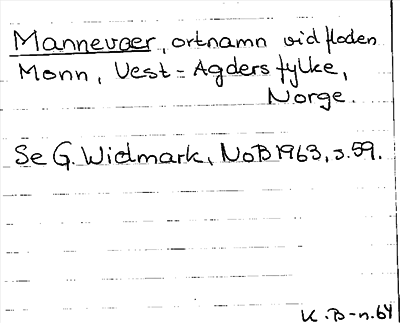 Mannevær, ortnamn vid floden
Monn, Vest-Agders fylke,
Norge.
Se G. Widmark, NoB 1963, s. 59.
K. B-n. 64